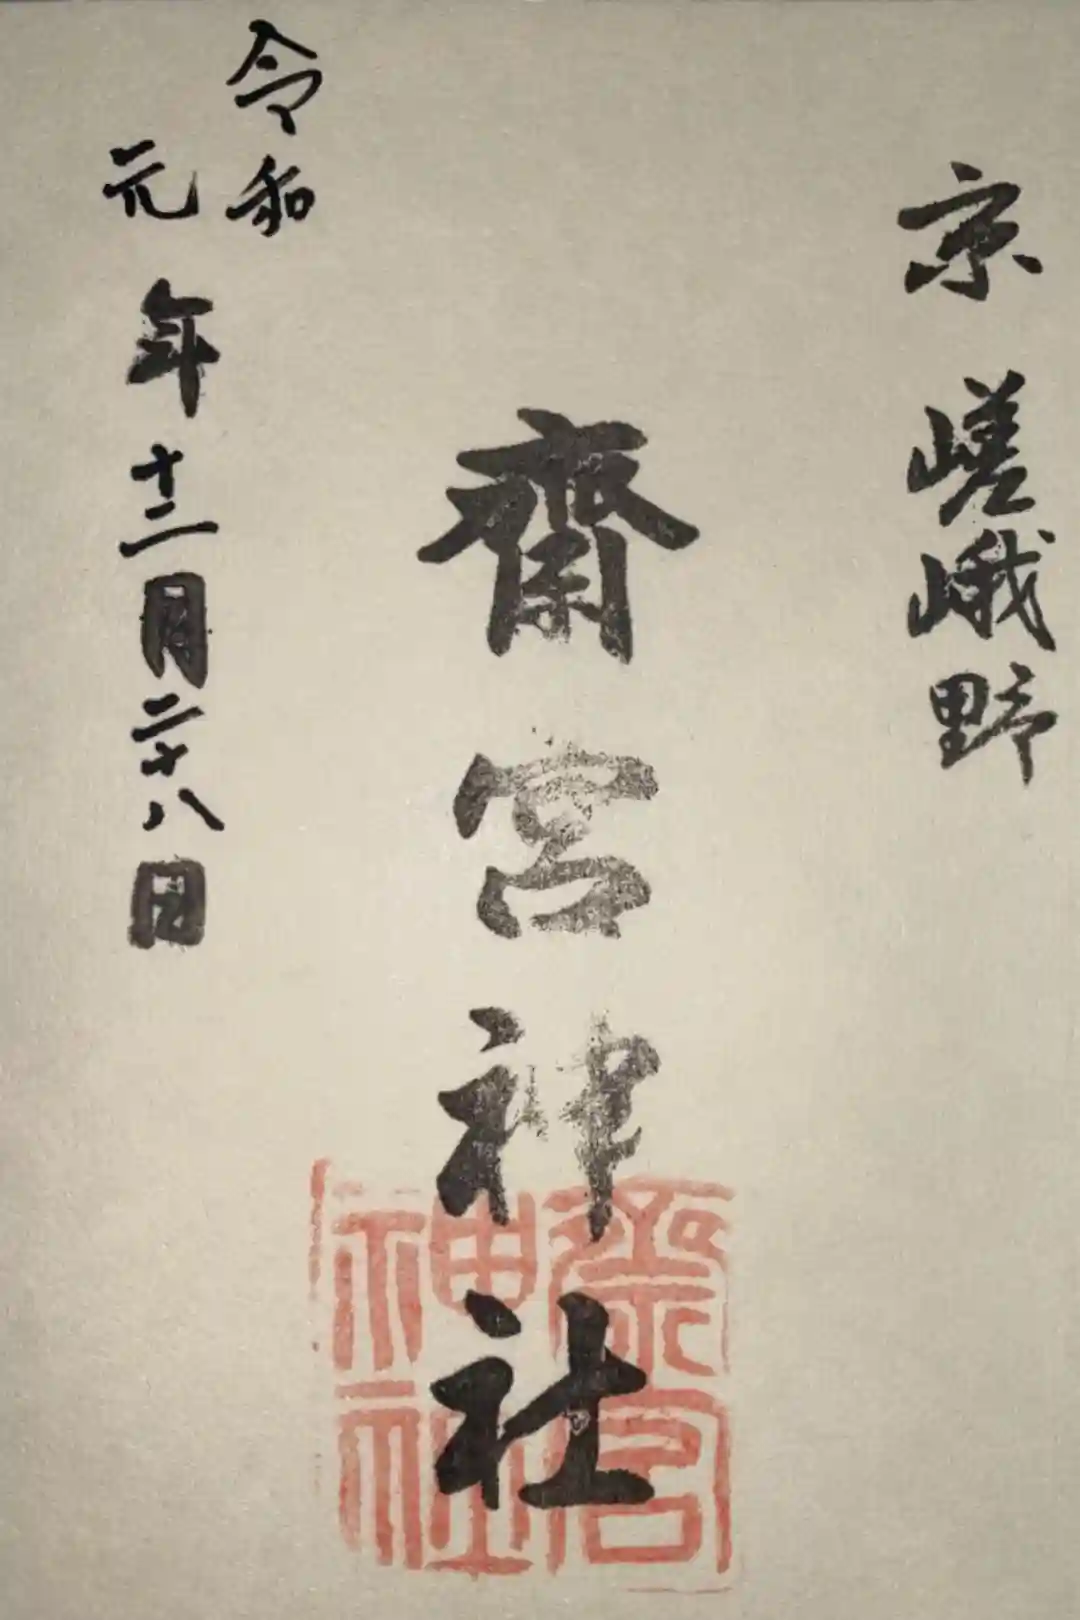 京 嵯峨野
齋宮神社
令和
元年十二月二十八日
齋宮
神社